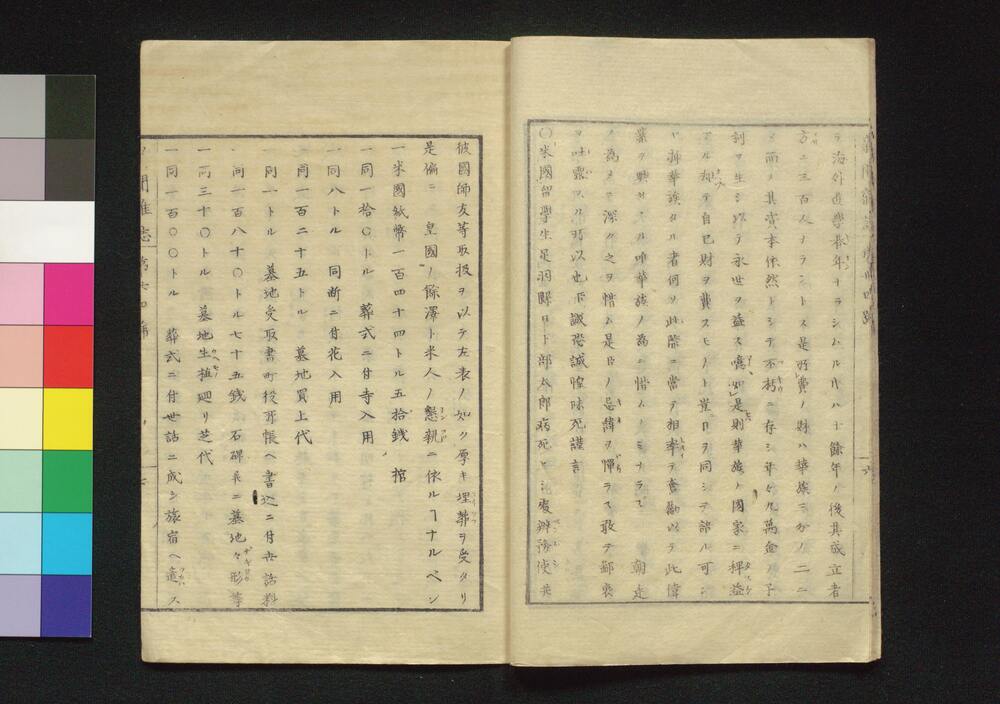 ラ海外遊學
方ニ三百人ナラントス是所費ノ財ハ華族三分ノ二ニ
シ而ノ其資本依然トシテ不朽ニ存シ年々九萬金ノ子
利ヲ生シ以テ永世ヲ益ス嗚如是則華族ト國家ニ裨益
アル却テ自己財ヲ費スモノト豈日ヲ同シテ語ル可ン
ヤ抑華族タル者何ソ此際ニ當テ相率テ奮勵以テ此偉
業ヲ興サヽル唯華族ノ為ニ惜ムノミナラス 朝廷
ノ為メニ深ク之ヲ惜ム是臣ノ忌諱ヲ憚ラス敢テ鄙衷
ヲ吐露スル所以也臣誠恐誠惶昧死謹言
〇米國留學生日下部太郎病死セシ
彼國師友等取扱ヲ以テ左表ノ如ク厚キ埋葬ヲ受タリ
是偏ニ 皇國ノ餘澤ト米人ノ懇親ニ依ルヿナルベシ
一米國紙幣一百四十四トル五拾錢 棺
一同一拾〇トル 葬式ニ付寺入用
一同八トル 同断ニ付花入用
一同一百二十五トル 墓地買上代
一同一トル 墓地受取書町役所帳ヘ書込ニ付世話料
一同一百八十〇トル七十五錢 石碑并ニ墓地々形等
一同三十〇トル 墓地生植廻リ芝代
一同一百〇〇トル 葬式ニ付世話ニ成シ旅宿ヘ遣ス